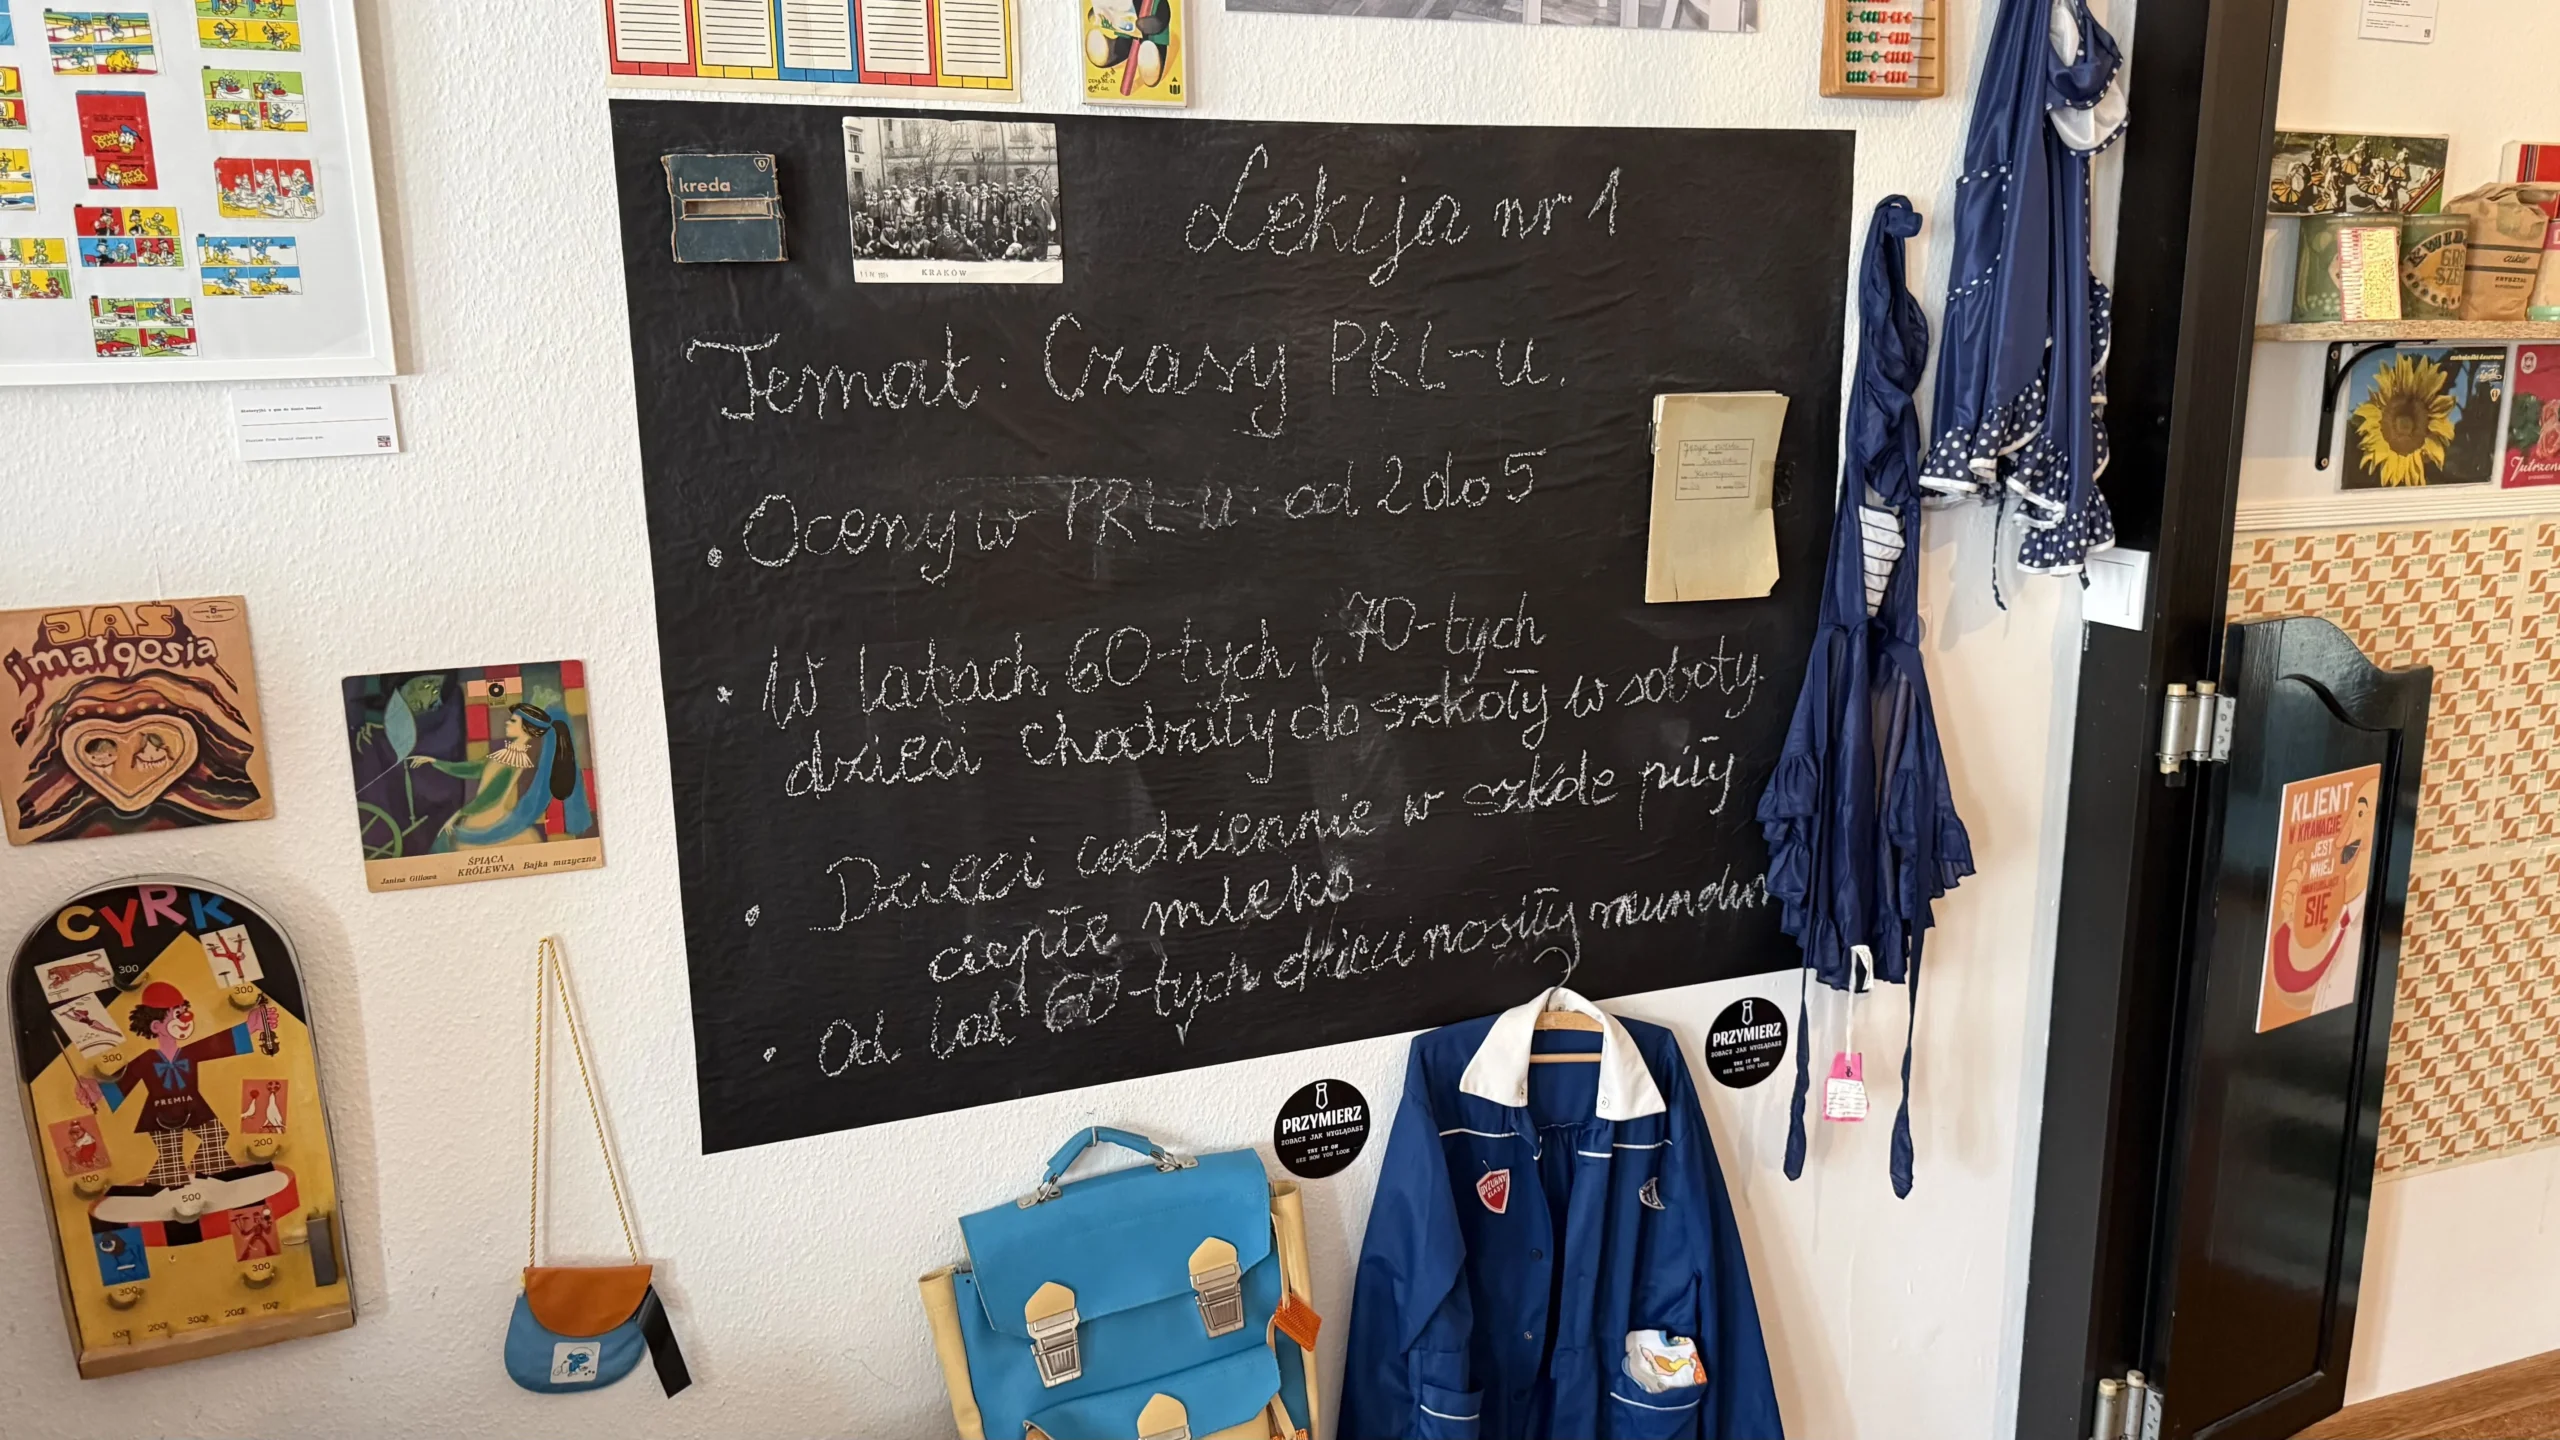 kreda
KRAKÓW
Lekcja nr 1
Temat: Czasy PRL-u.
• Oceny w PRL-u: od 2 do 5
• W latach 60-tych i 70-tych
dzieci chodziły do szkoły w soboty.
• Dzieci codziennie w szkole piły
ciepłe mleko.
• Od lat 60-tych dzieci nosiły mundur
JAŚ
i małgosia
ŚPIĄCA
KRÓLEWNA Bajka muzyczna
Janina Gillowa
CYRK
300
300
300
PREMIA
200
100
500
300
300
100 200 300 200 100
PRZYMIERZ
ZOBACZ JAK WYGLĄDASZ
TRY IT ON
SEE HOW YOU LOOK
PRZYMIERZ
ZOBACZ JAK WYGLĄDASZ
TRY IT ON
SEE HOW YOU LOOK
DYŻURNY
KLASY
KLIENT
W KRAWACIE
JEST
MNIEJ
AWANTURUJĄCY
SIĘ
cukier